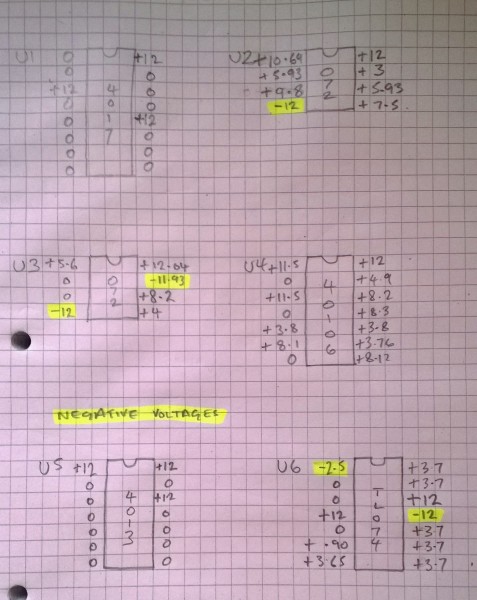 U1 0 +12 U2 +10.69 +12
0 0 +5.93 0 +3
+12 4 0 +9.8 7 +5.93
0 0 0 -12 2 +7.5
0 1 +12
0 7 0
0 0
0 0
U3 +5.6 +12.04 U4 +11.5 +12
0 0 -11.93 0 4 +4.9
0 7 +8.2 +11.5 0 +8.2
-12 2 +4 0 1 +8.3
+3.8 0 +3.8
+8.1 6 +3.76
0 +8.12
NEGATIVE VOLTAGES
U5 +12 +12 U6 -2.5 +3.7
0 0 0 T +3.7
0 4 +12 0 L +12
0 0 0 +12 0 -12
0 1 0 0 7 +3.7
0 3 0 +.90 4 +3.7
0 0 +3.65 +3.7